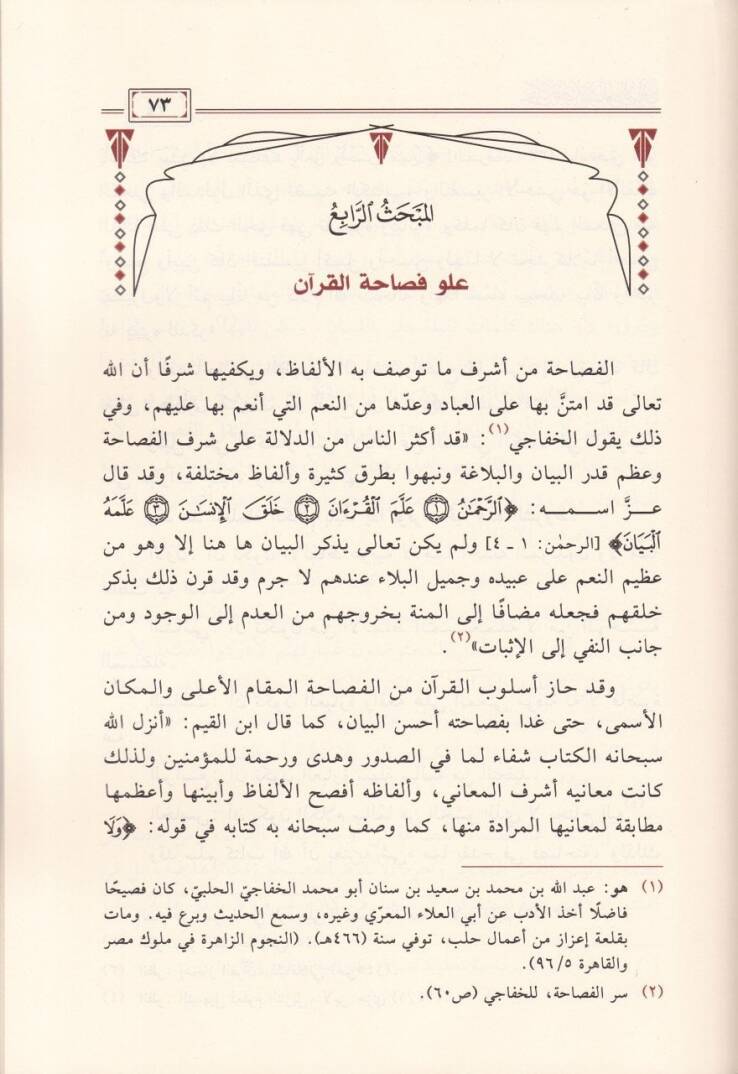 ٧٣
المَبْحَثُ الرَّابِعُ
علو فصاحة القرآن
الفصاحة من أشرف ما توصف به الألفاظ، ويكفيها شرفًا أن الله
تعالى قد امتنَّ بها على العباد وعدّها من النعم التي أنعم بها عليهم، وفي
ذلك يقول الخفاجي(١): «قد أكثر الناس من الدلالة على شرف الفصاحة
وعظم قدر البيان والبلاغة ونبهوا بطرق كثيرة وألفاظ مختلفة، وقد قال
عزَّ اسمه: ﴿الرَّحْمَٰنُ ۝١ عَلَّمَ الْقُرْءَانَ ۝٢ خَلَقَ الْإِنسَٰنَ ۝٣ عَلَّمَهُ
الْبَيَانَ﴾ [الرحمٰن: ١ ـ ٤] ولم يكن تعالى يذكر البيان ها هنا إلا وهو من
عظيم النعم على عبيده وجميل البلاء عندهم لا جرم وقد قرن ذلك بذكر
خلقهم فجعله مضافًا إلى المنة بخروجهم من العدم إلى الوجود ومن
جانب النفي إلى الإثبات»(٢).
وقد حاز أسلوب القرآن من الفصاحة المقام الأعلى والمكان
الأسمى، حتى غدا بفصاحته أحسن البيان، كما قال ابن القيم: «أنزل الله
سبحانه الكتاب شفاء لما في الصدور وهدى ورحمة للمؤمنين ولذلك
كانت معانيه أشرف المعاني، وألفاظه أفصح الألفاظ وأبينها وأعظمها
مطابقة لمعانيها المرادة منها، كما وصف سبحانه به كتابه في قوله: ﴿وَلَا
(١) هو: عبد الله بن محمد بن سعيد بن سنان أبو محمد الخفاجيّ الحلبيّ، كان فصيحًا
فاضلًا أخذ الأدب عن أبي العلاء المعرّي وغيره، وسمع الحديث وبرع فيه. ومات
بقلعة إعزاز من أعمال حلب، توفي سنة (٤٦٦هـ). (النجوم الزاهرة في ملوك مصر
والقاهرة ٩٦/٥).
(٢) سر الفصاحة، للخفاجي (ص٦٠).